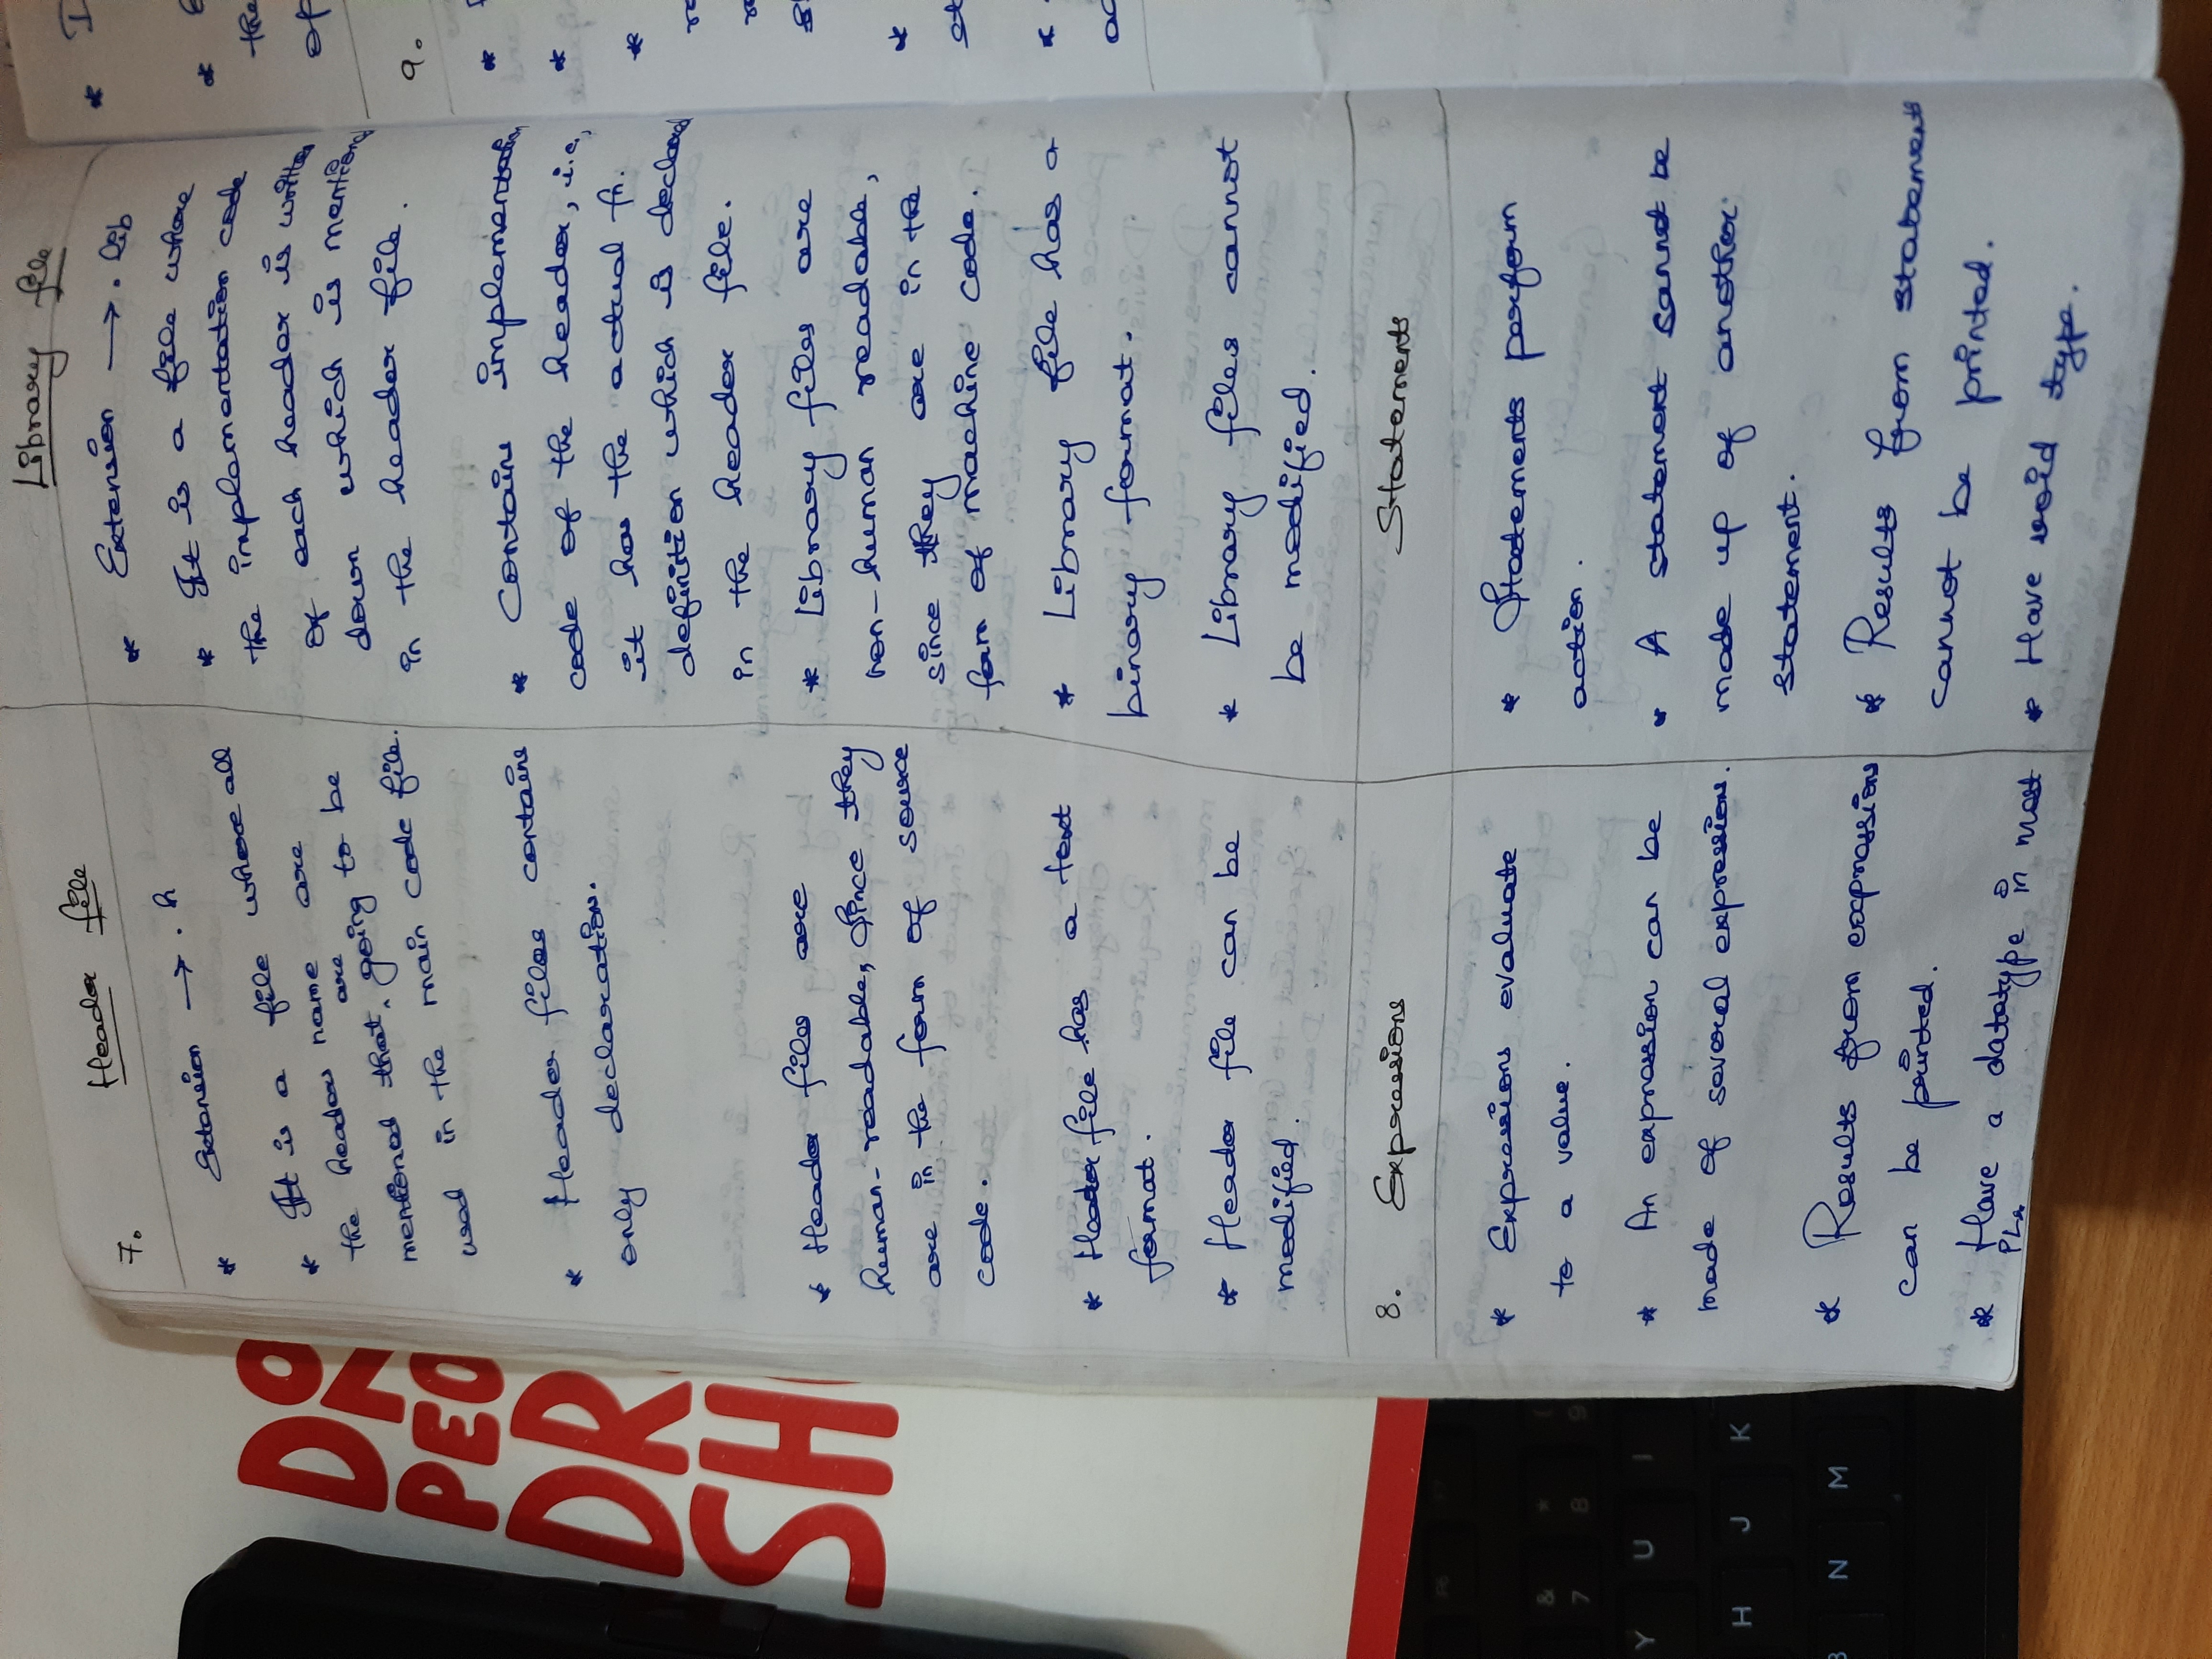 7. Header file
* Extension → . h
* It is a file where all
the header name are
mentioned that are going to be
used in the main code file.
* Header files contains
only declaration.
* Header files are
human-readable, Since they
are in the form of source
code.
* Header file has a text
format.
* Header file can be
modified.
Library file
* Extension → . lib
* It is a file where
the implementation code
of each header is written
down which is mentioned
in the header file.
* Contains implementation
code of the header, i.e,
it has the actual fn.
definition which is declared
in the header file.
* Library files are
non-human readable,
since they are in the
form of machine code.
* Library file has a
binary format.
* Library files cannot
be modified.
8. Expressions
* Expressions evaluate
to a value.
* An expression can be
made of several expressions.
* Results from expressions
can be printed.
* Have a datatype in most
PLs
Statements
* Statements perform
action.
* A statement cannot be
made up of another
statement.
* Results from statements
cannot be printed.
* Have void type.
*
*
the
of
9.
*
*
*
*
*
DR
SH
& 7
* 8
( 9
Y U I
H J K
N M